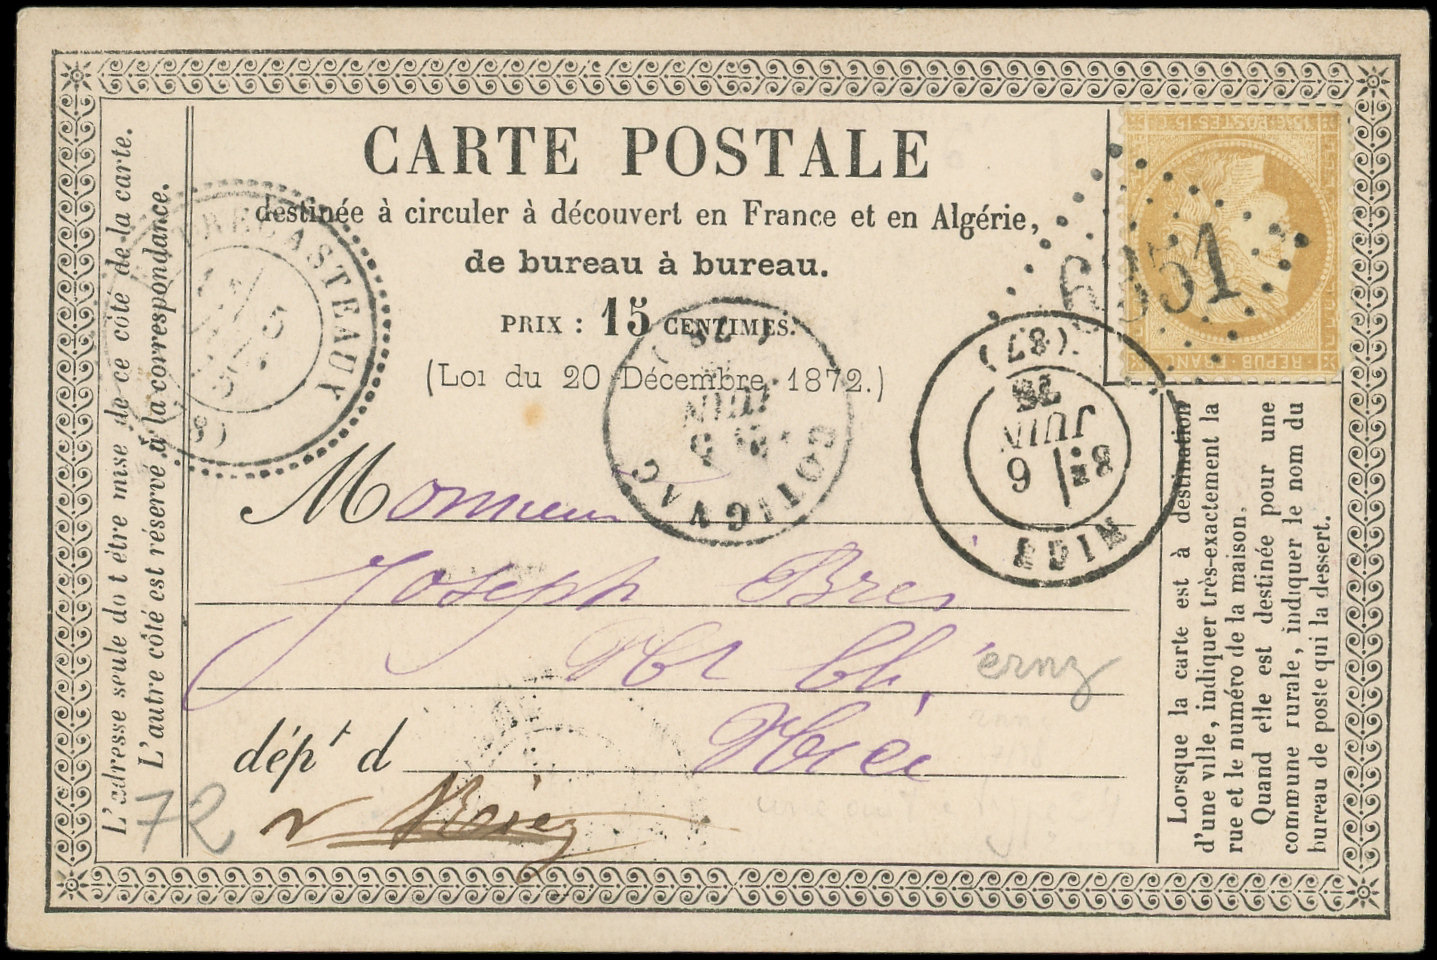 CARTE POSTALE
destinée à circuler à découvert en France et en Algérie,
de bureau à bureau.
PRIX : 15 CENTIMES.
(Loi du 20 Décembre 1872.)
L'adresse seule doit être mise de ce côté de la carte.
L'autre côté est réservé à la correspondance.
15·C·POSTES·15·C
REPUB·FRANC
6351
ENTRECASTEAUX
COTIGNAC
JUIN
(87)
8E
6
JUIN
75
Monsieur
Joseph Bres
dépt d
72
Lorsque la carte est à destination
d'une ville, indiquer très-exactement la
rue et le numéro de la maison.
Quand elle est destinée pour une
commune rurale, indiquer le nom du
bureau de poste qui la dessert.